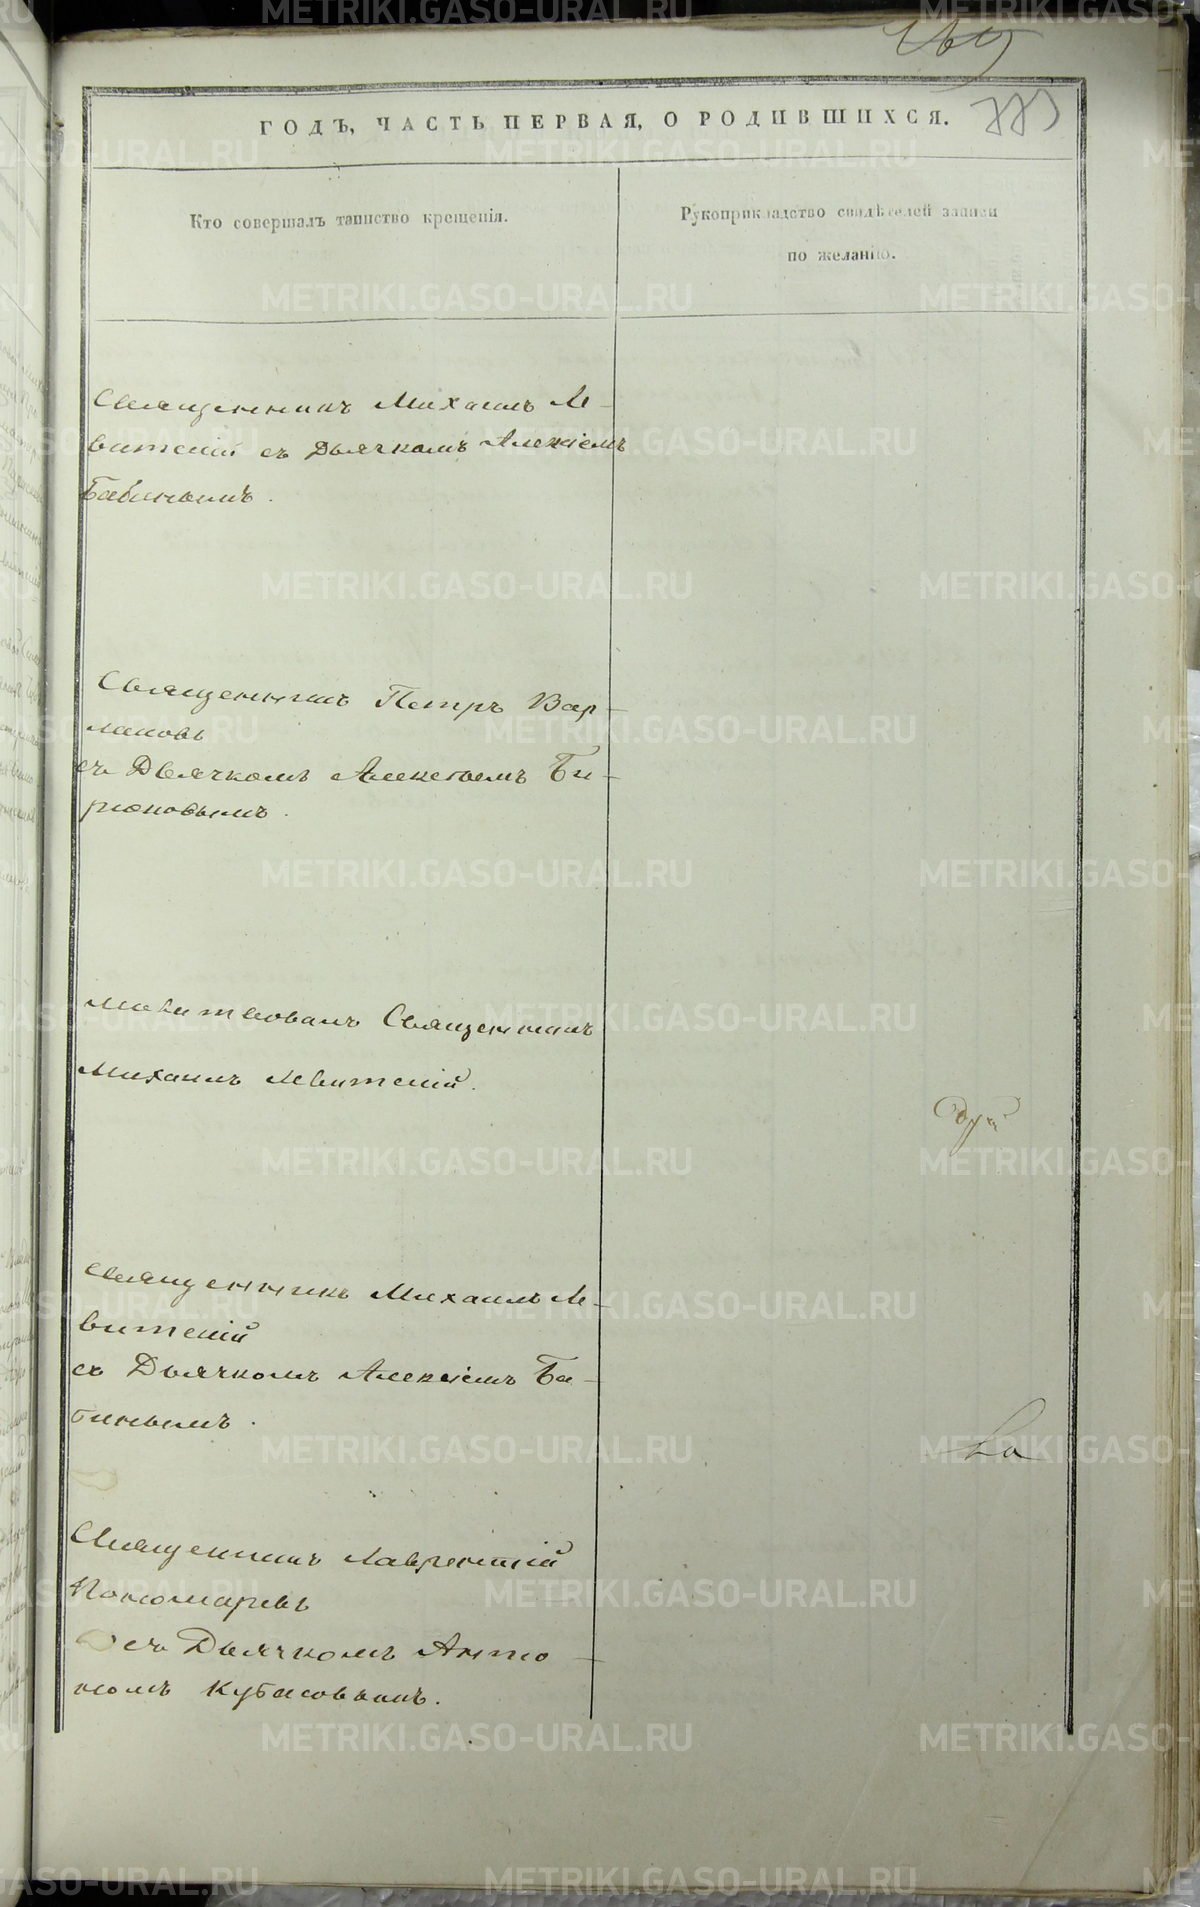 ГОДЪ, ЧАСТЬ ПЕРВАЯ, О РОДИВШИХСЯ.
Кто совершалъ таинство крещенія.
Рукоприкладство свидѣтелей записи
по желанію.
Священникъ Михаилъ Ле-
витскій съ Дьячкомъ Алексіемъ
Бабинымъ.
Священникъ Петръ Вар-
лаковъ
съ Дьячкомъ Алексѣемъ Би-
рюковымъ.
Молитвовалъ Священникъ
Михаилъ Левитскій.
Священникъ Михаилъ Ле-
витскій
съ Дьячкомъ Алексіемъ Ба-
бинымъ.
Священникъ Лаврентій
Пономаревъ
съ Дьячкомъ Анто-
номъ Кубасовымъ.
METRIKI.GASO-URAL.RU